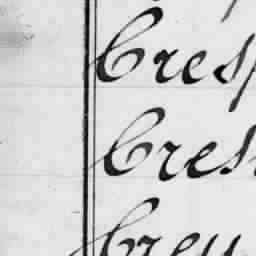 Cresp
Cres
Crey